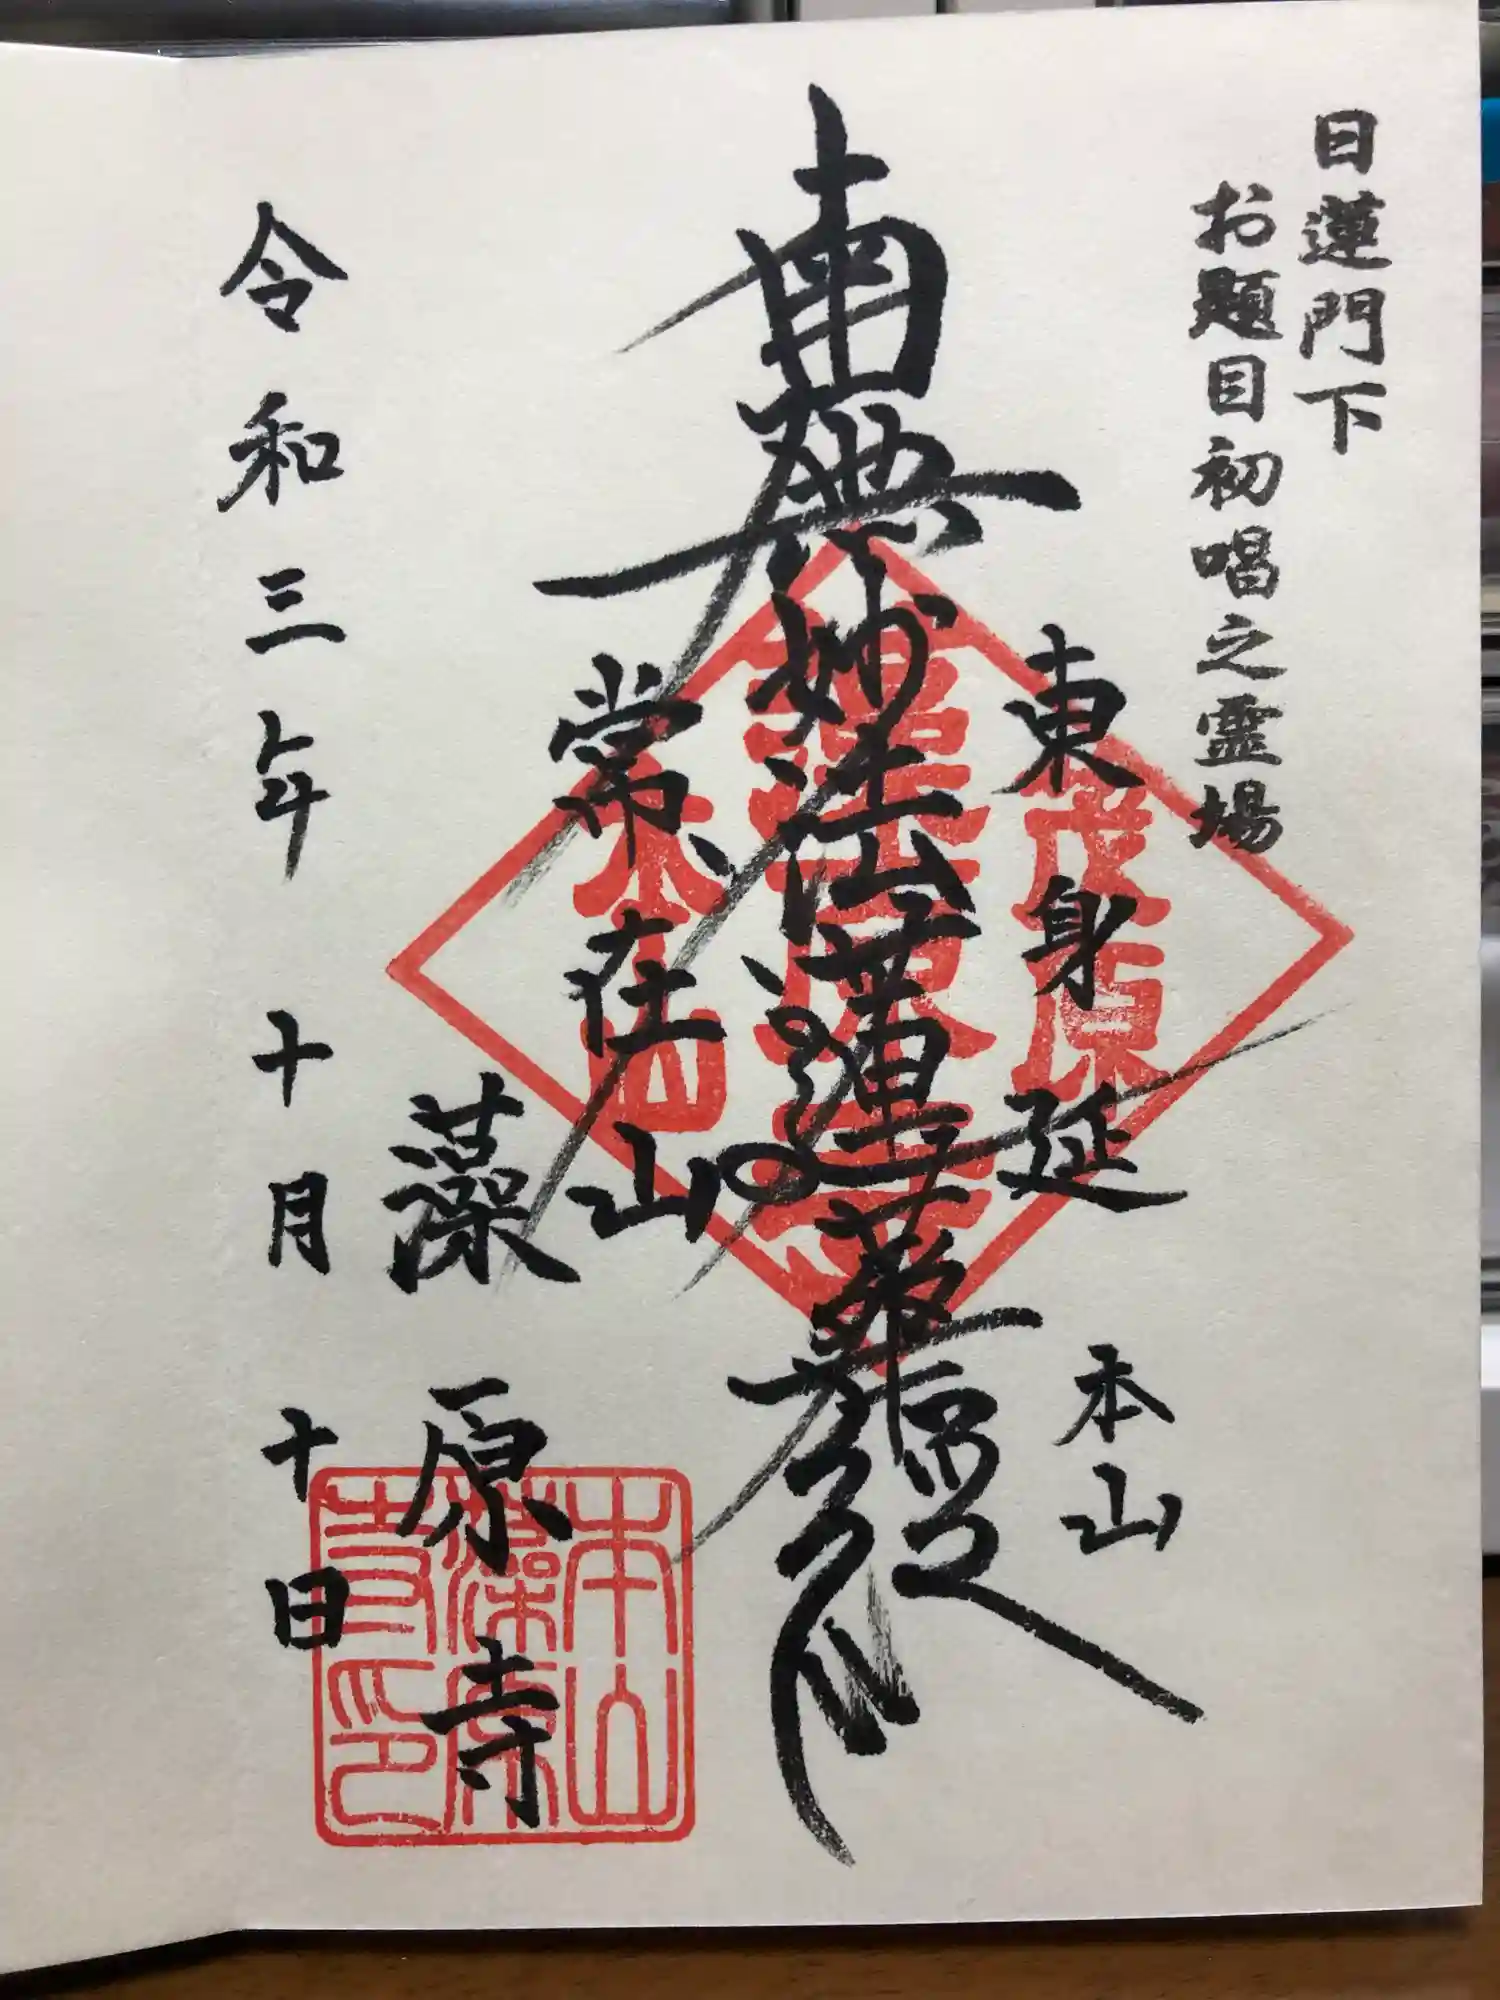 日蓮門下
お題目初唱之霊場
東身延
本山
南無妙法蓮華経
常在山
藻原寺
令和三年 十月 十日
茂原
本山
本山
藻原
寺印